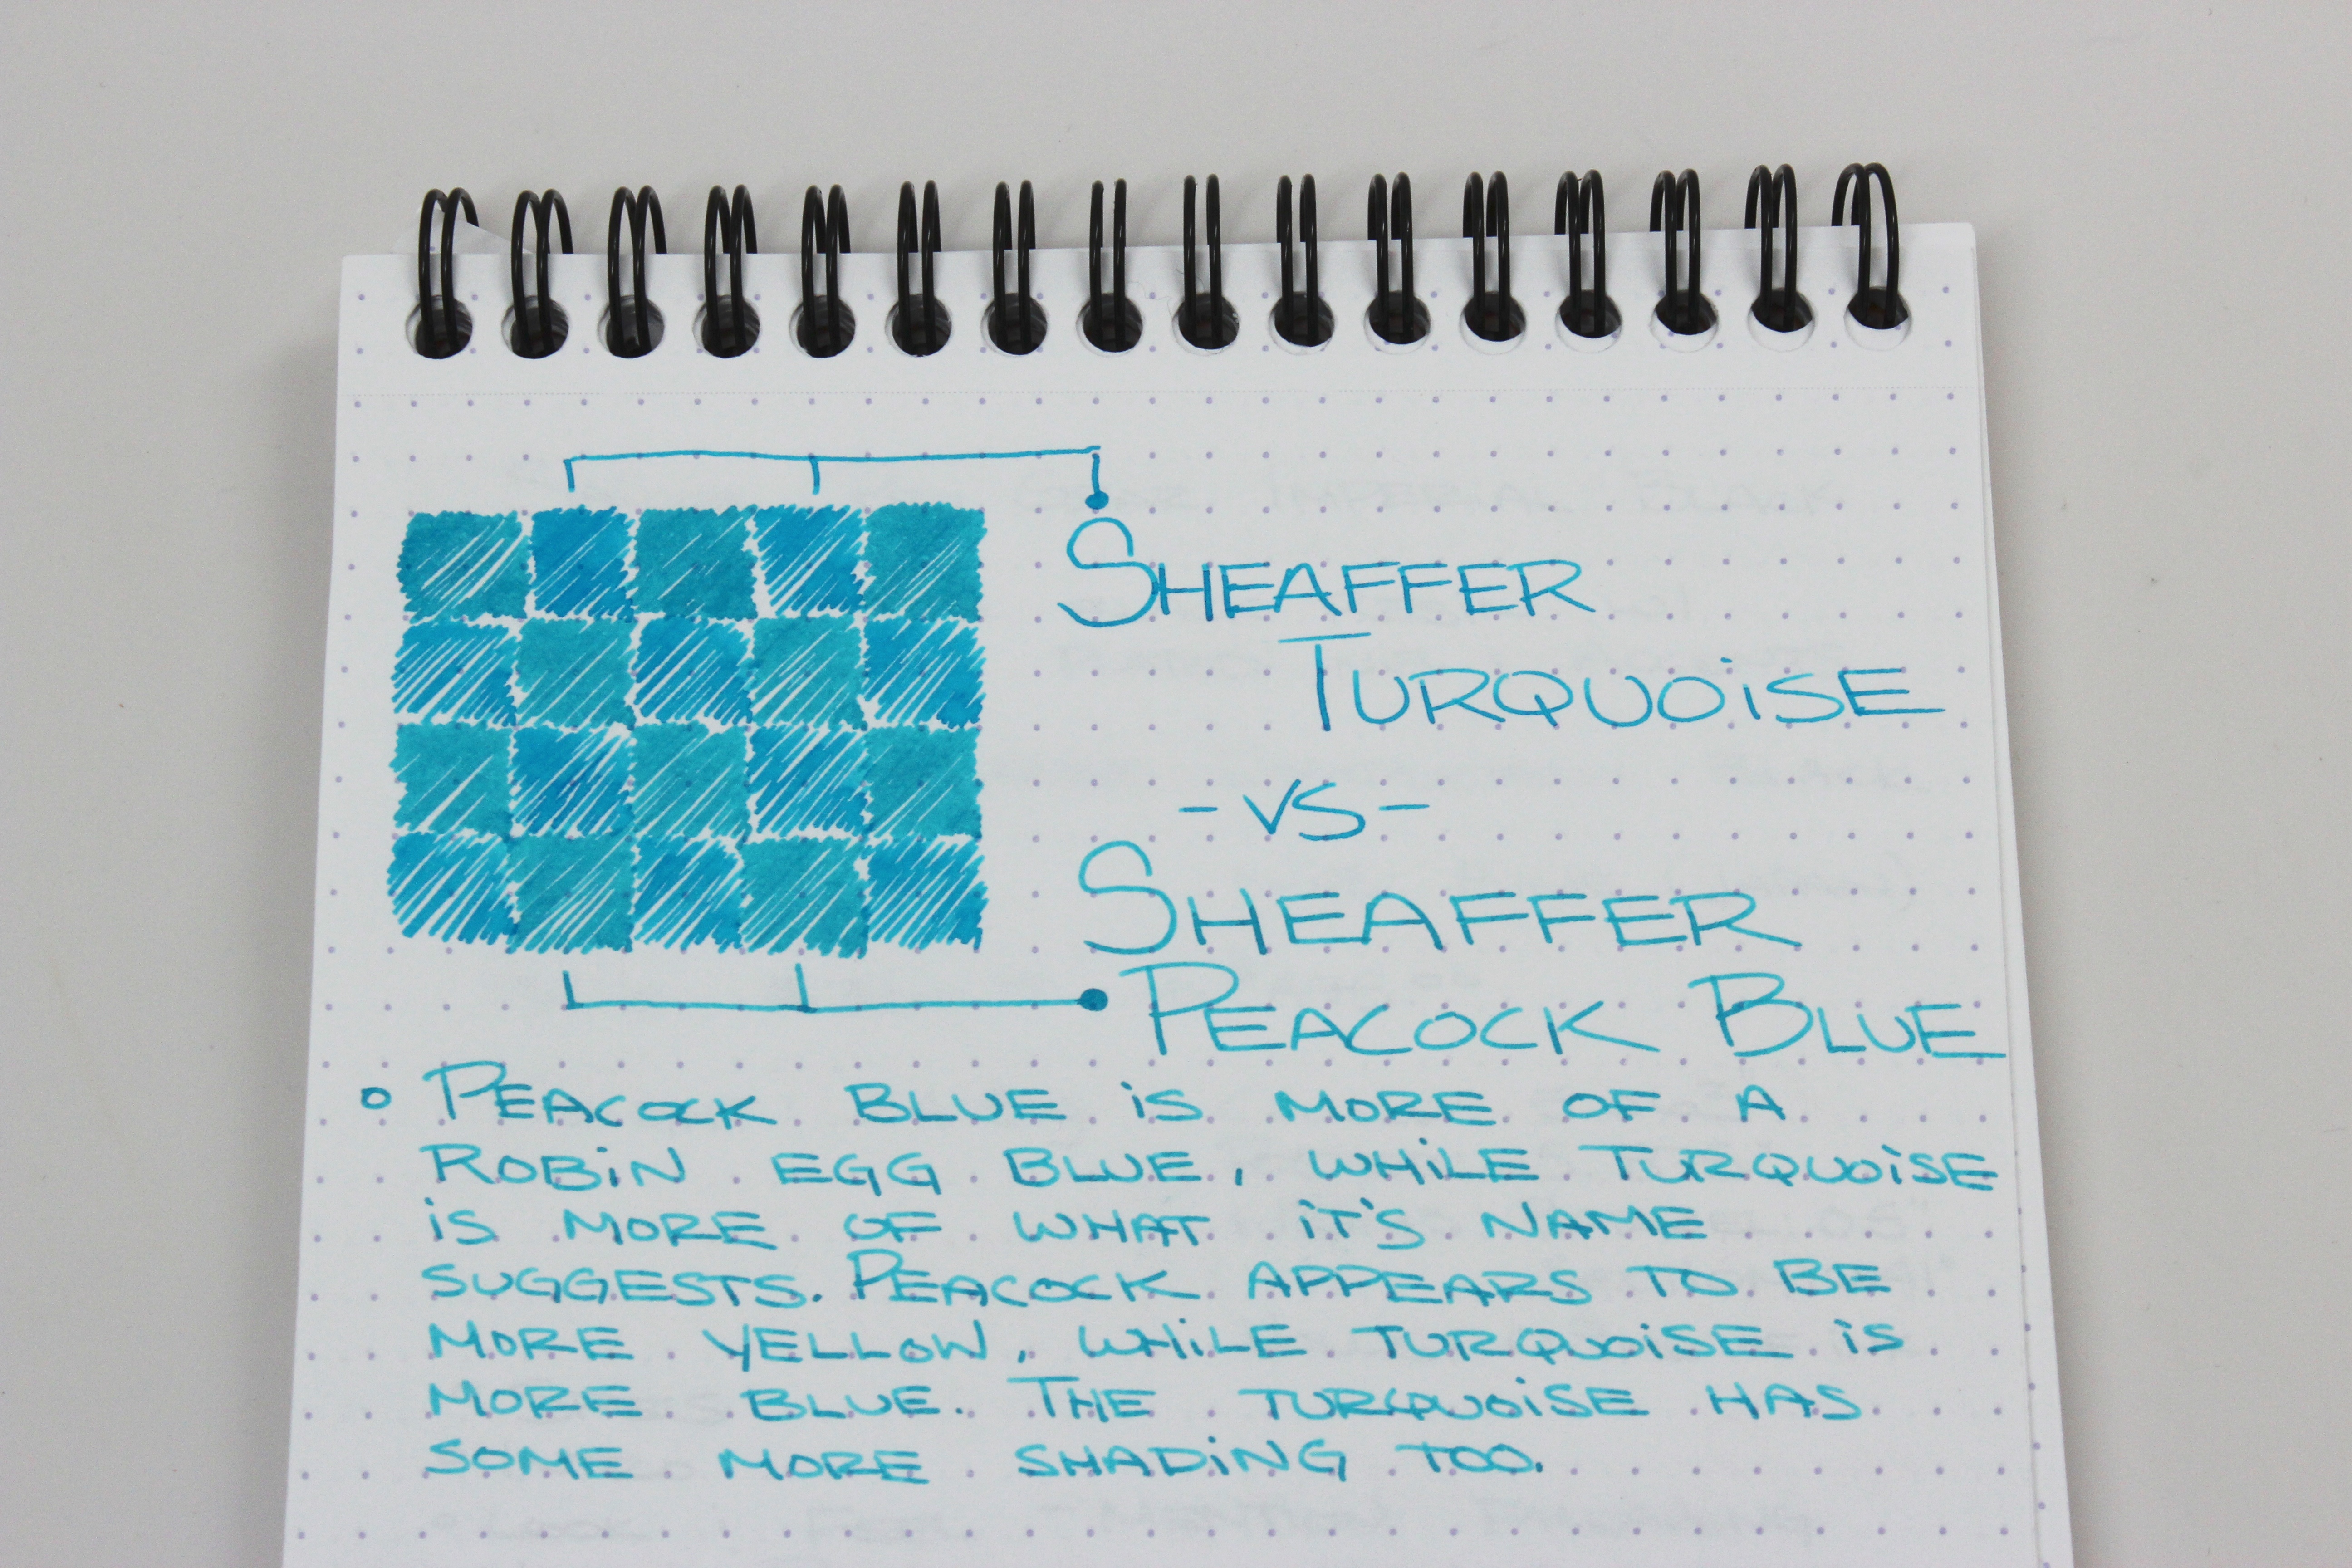 SHEAFFER
TURQUOISE
-VS-
SHEAFFER
PEACOCK BLUE
PEACOCK BLUE IS MORE OF A
ROBIN EGG BLUE, WHILE TURQUOISE
IS MORE OF WHAT IT'S NAME
SUGGESTS. PEACOCK APPEARS TO BE
MORE YELLOW, WHILE TURQUOISE IS
MORE BLUE. THE TURQUOISE HAS
SOME MORE SHADING TOO.